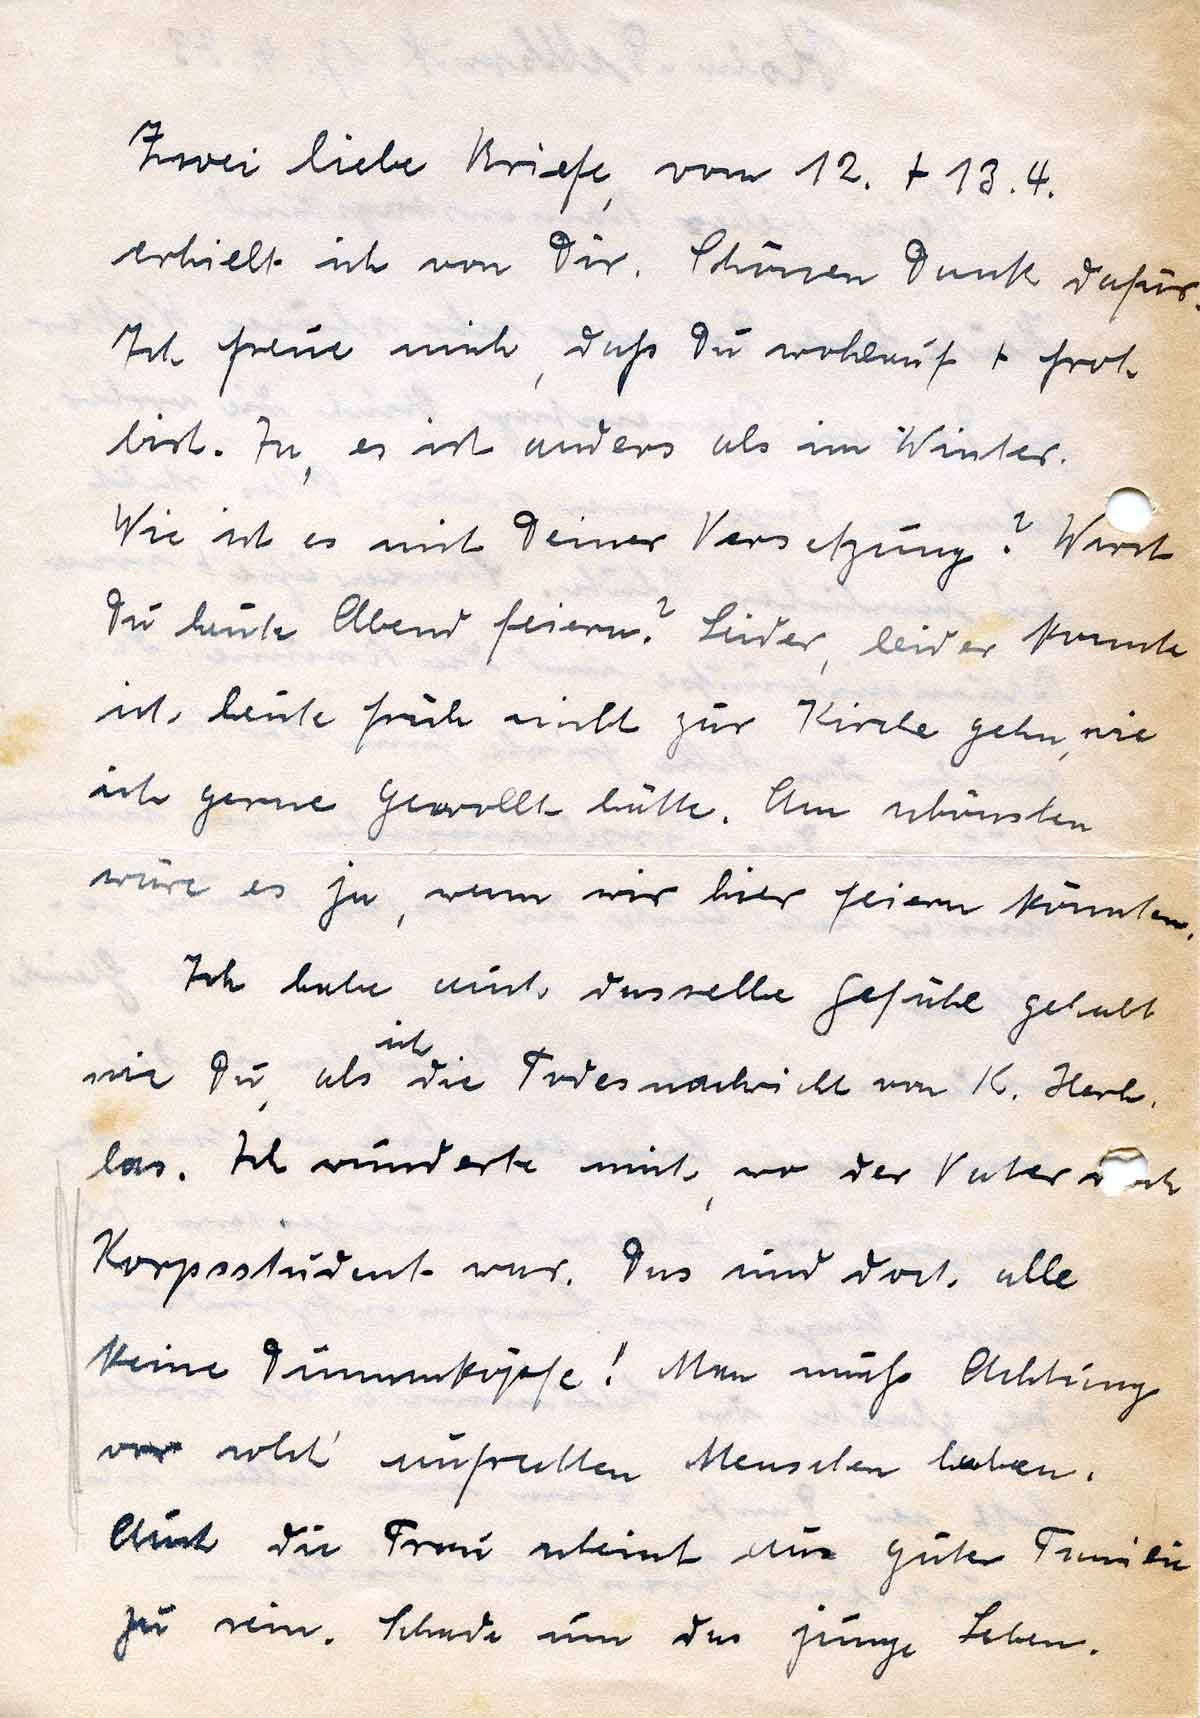 Zwei liebe Briefe, vom 12. + 13.4.
erhielt ich von Dir. Schönen Dank dafür.
Ich freue mich, daß Du wohlauf + froh
bist. Ja, es ist anders als im Winter.
Wie ist es mit Deiner Versetzung? Warst
Du heute Abend feiern? Leider, leider konnte
ich heute früh nicht zur Kirche gehn, wie
ich gerne gewollt hätte. Am schönsten
wäre es ja, wenn wir hier feiern könnten.
Ich habe auch dasselbe Gefühl gehabt
wie Du, als ich die Todesnachricht von K. Herb.
las. Ich wunderte mich, wo der Vater doch
Korpsstudent war. Das sind doch alle
keine Dummköpfe! Man muß Achtung
vor solch' aufrechten Menschen haben.
Auch die Frau scheint aus guter Familie
zu sein. Schade um das junge Leben.